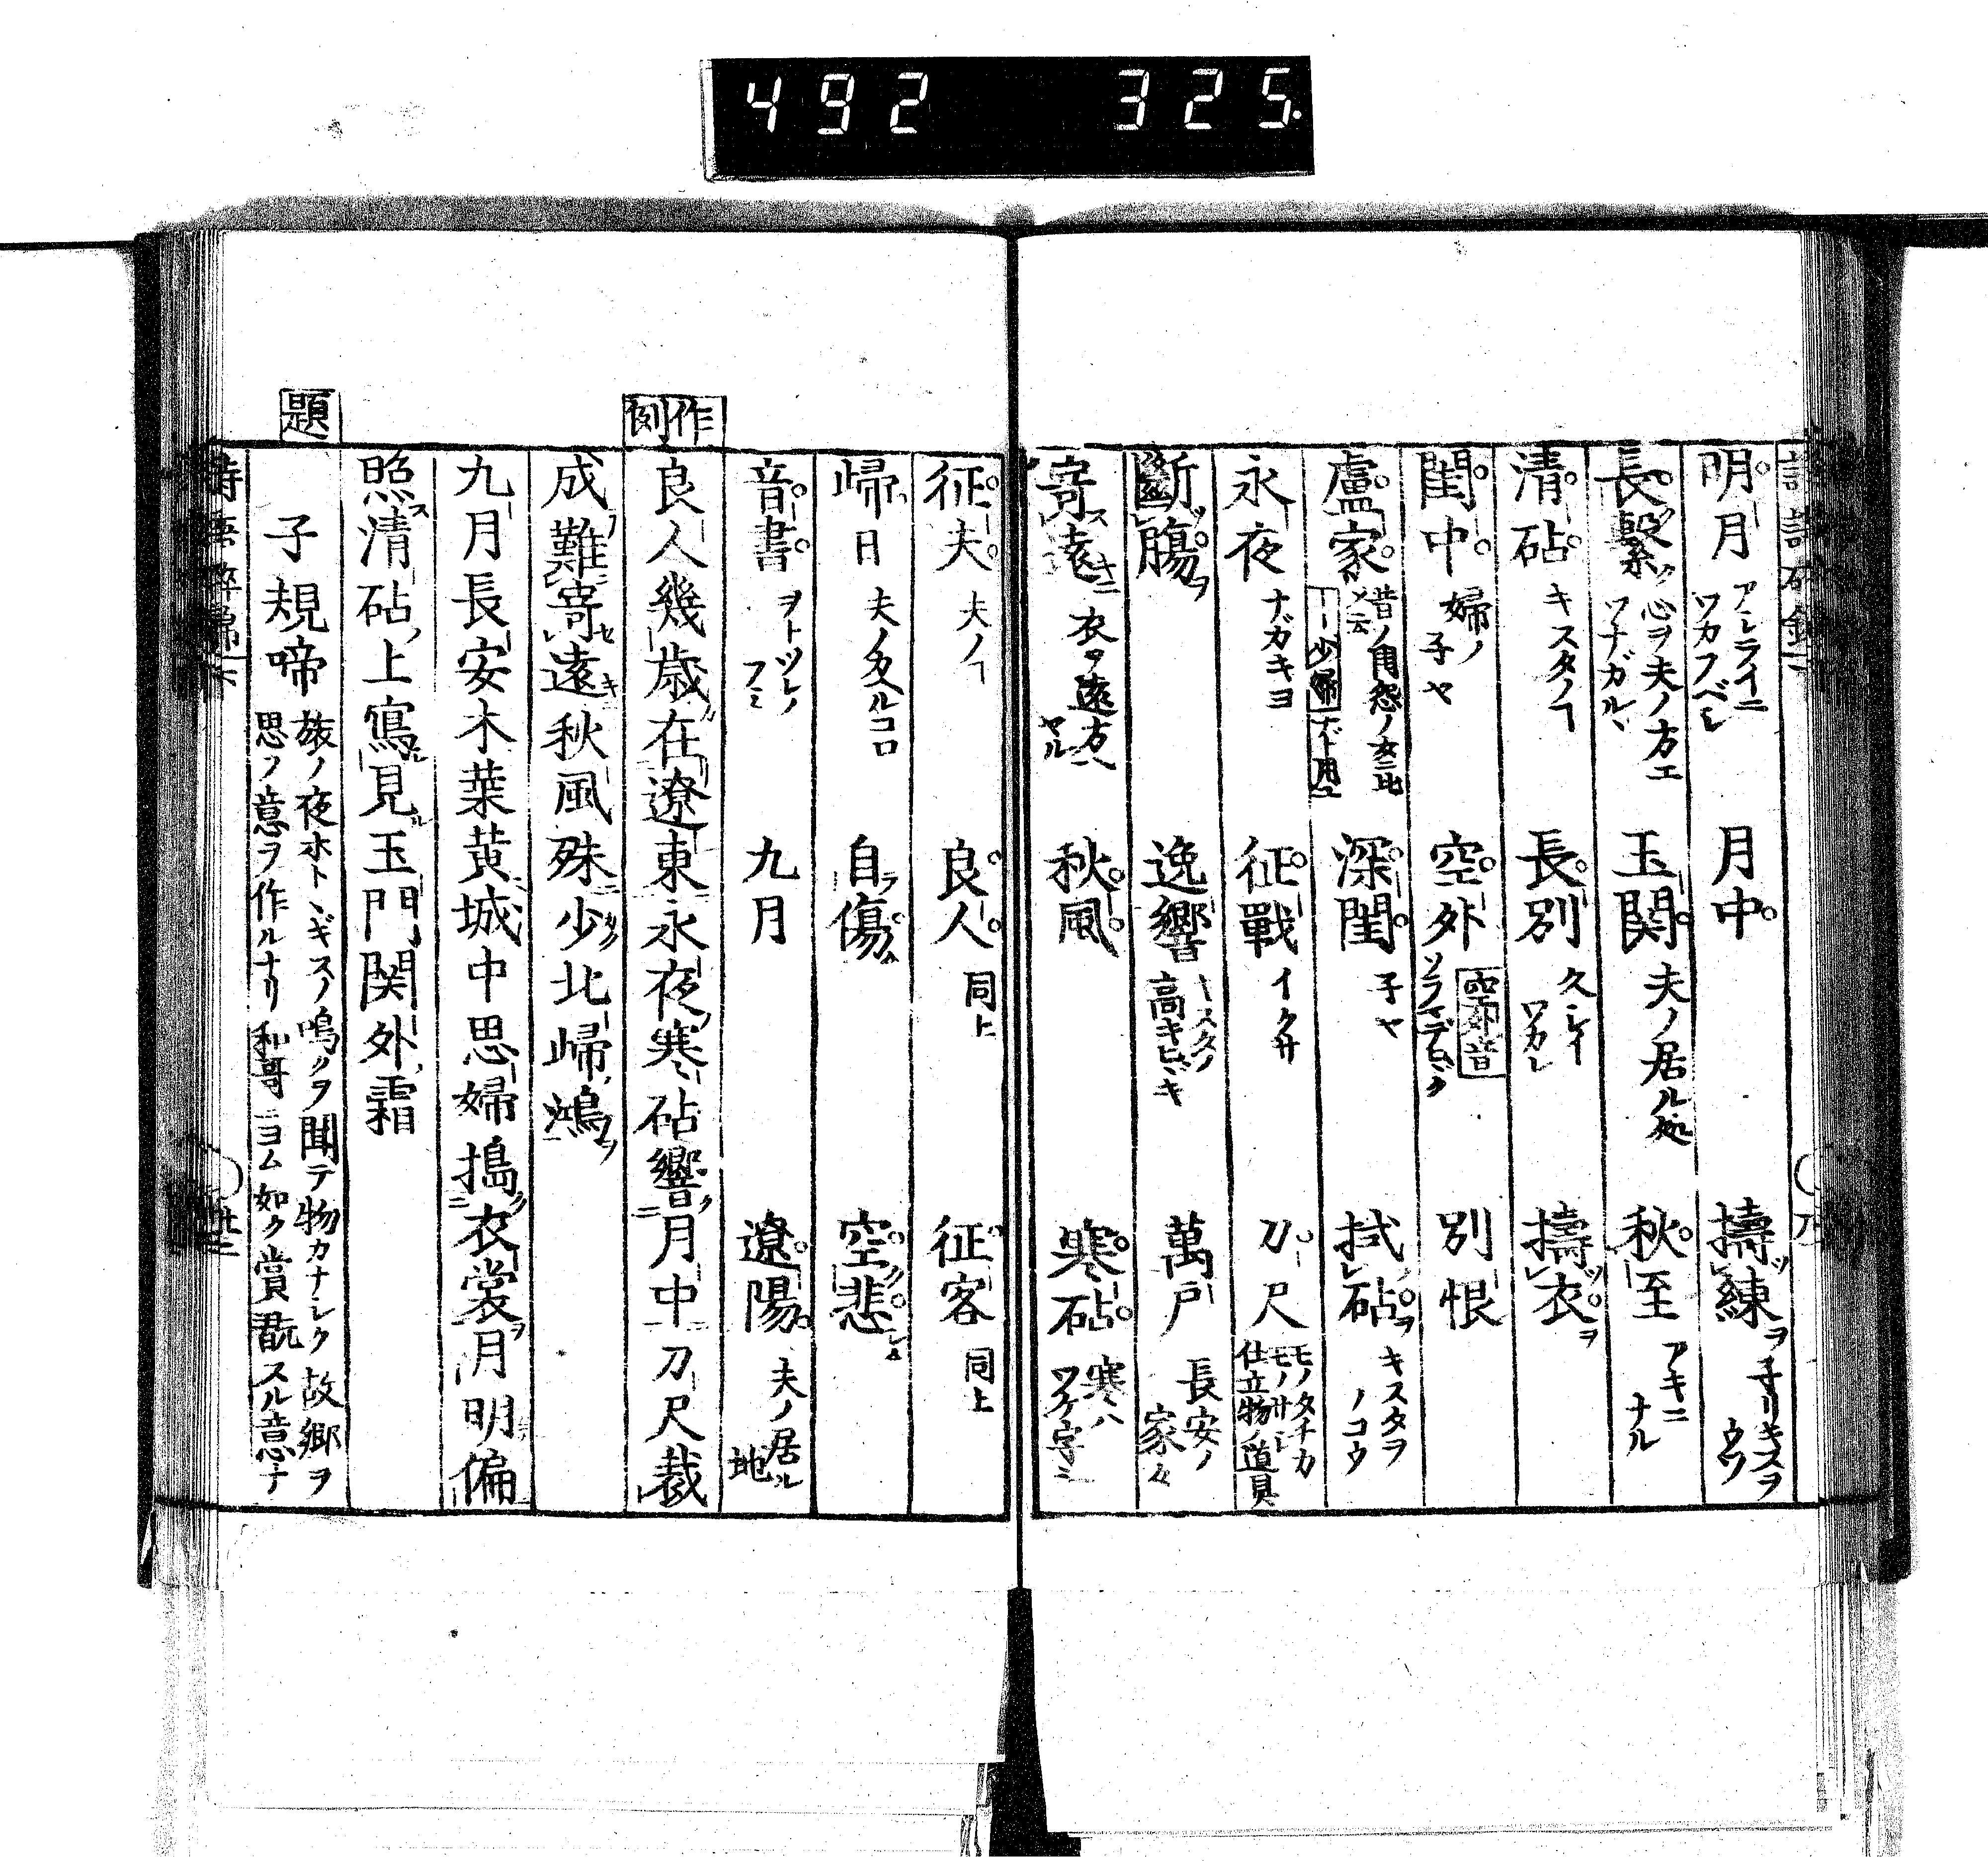 492 325.
明月 アレライニワカフベシ 月中 擣練 ヲ子リキヌヲウツ
長繫 心ヲ夫ノ方エツナガル、 玉関 夫ノ居ル処 秋至 アキニナル
清砧 キヌタノ 長別 久シイワカレ 擣衣
閨中 婦ノ子ヤ 空外 空外音 ソラマデヒヾク 別恨
盧家 昔ノ 少婦ナド用 深閨 子ヤ 拭砧 キヌタヲノコウ
永夜 ナガキヨ 征戰 イクサ 刀尺 モノタチカモノサシ仕立物ノ道具
斷腸 逸響 キヌタノ高キヒヾキ 萬戸 長安ノ家々
寄遠 衣ヲ遠方ヘヤル 秋風 寒砧 寒ハツケ字ニ
征夫 夫ノ 良人 同上 征客 同上
歸日 夫ノ皈ルコロ 自傷 空悲
音書 ヲトツレノフミ 九月 遼陽 夫ノ居ル地
作例
良人幾歳在遼東永夜寒砧響月中刀尺裁
成難寄遠秋風殊少北歸鴻
九月長安木葉黄城中思婦搗衣裳月明偏
照清砧上寫見玉門関外霜
題
子規啼 旅ノ夜ホトヽギスノ鳴クヲ聞テ物カナシク故郷ヲ思フノ意ヲ作ルナリ和哥ニヨム如ク賞翫スル意ナ